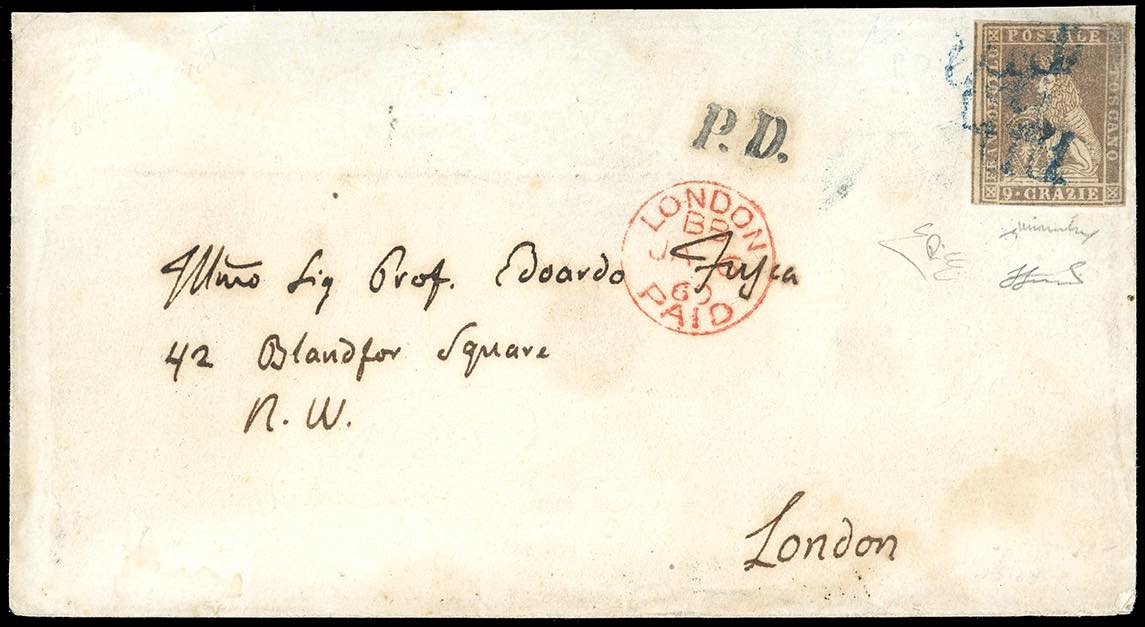 FRANCOBOLLO POSTALE TOSCANO
9 · CRAZIE
P.D.
LONDON
BB
60
PAID
Illmo Sig Prof. Edoardo Fusca
42 Blandfor Square
N. W.
London